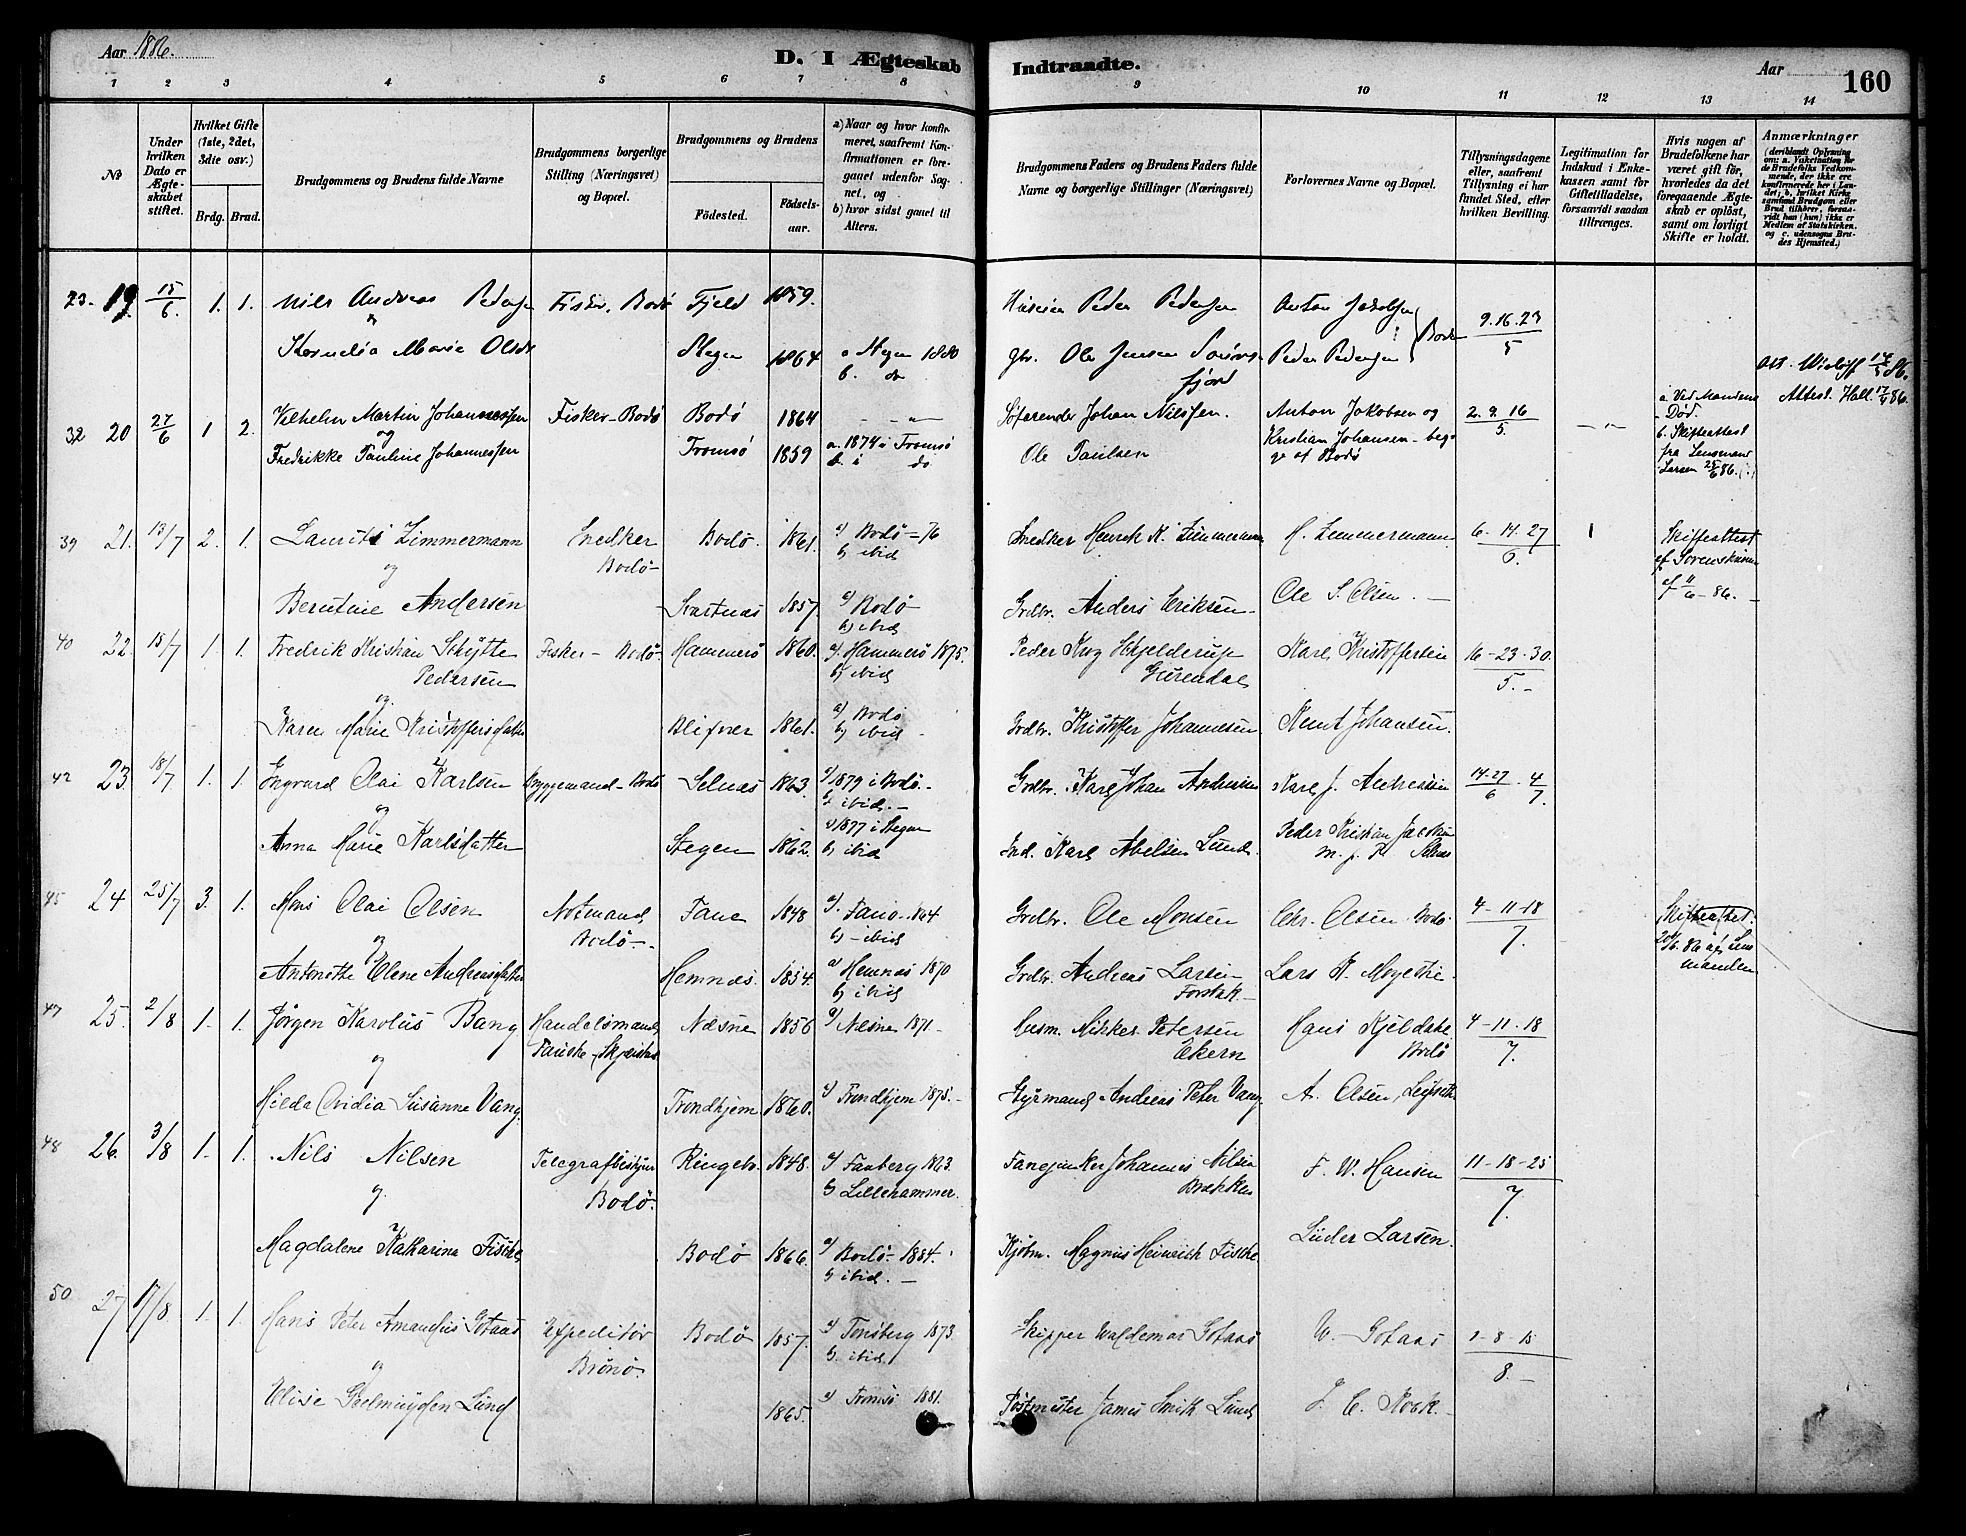 Aar 1886.
D. I Ægteskab Indtraadte.
Aar
160
1 2 3 4 5 6 7 8 9 10 11 12 13 14
No
Under hvilken Dato er Ægteskabet stiftet.
Hvilket Gifte (1ste, 2det, 3die osv.)
Brdg. Brud.
Brudgommens og Brudens fulde Navne
Brudgommens borgerlige Stilling (Næringsvei) og Bopæl.
Brudgommens og Brudens
Födested. Födselsaar.
a) Naar og hvor konfirmeret, saafremt Konfirmationen er foregaaet udenfor Sognet, og
b) hvor sidst gaaet til Alters.
Brudgommens Faders og Brudens Faders fulde Navne og borgerlige Stillinger (Næringsvei)
Forlovernes Navne og Bopæl.
Tillysningsdagene eller, saafremt Tillysning ei har fundet Sted, efter hvilken Bevilling.
Legitimation for Indskud i Enkekassen samt for Giftetilladelse, forsaavidt saadan tiltrænges.
Hvis nogen af Brudefolkene har været gift för, hvorledes da det foregaaende Ægteskab er oplöst, samt om lovligt Skifte er holdt.
Anmærkninger (deriblandt Oplysning om: a. Vakcination for de Brudefolks Vedkommende, der ikke ere konfirmerede her i Landet; b. hvilket Kirkesamfund Brudgom eller Brud tilhörer, forsaavidt han (hun) ikke er Medlem af Statskirken, og c. udensogns Brudes Hjemsted.)
23. 19. 15/6. 1. 1. Nils Andreas Pedersen Fisker. Bodø Fjeld 1859. Peder Pedersen Anton Jakobsen 9.16.23/5
&
Kornelia Marie Olsdr Stegen 1864 a Stegen 1880 b. do Ole Jensen Peder Pedersen } Bodø
32 20 27/6 1 2. Vilhelm Martin Johannessen Fisker - Bodø Bodø 1864 - - " - Søfarende Johan Nilssen. Anton Jakobsen og 2. 9. 16/5. - " - a Ved Mandens Død. Attest. Hall. 17/4 86.
og
Fredrikke Pauline Johannessen Tromsø 1859 a. 1874 i Tromsø b. i do Ole Paulsen Kristian Johansen - begge af Bodø b. Skifteattest fra Lensmand Larsen 25/6 86.
39 21. 13/7 2. 1. Laurits Zimmermann Snedker Bodø - Bodø. 1861. a) Bodø - 76 b) ibid Snedker Henrik K. Zimmermann H. Zimmermann 6. 14. 27/6. 1 Skifteattest af Sorenskriveren af 11/6 - 86. -
og
Berntine Andersen 1857. a) Bodø - b) ibid Grdbr. Anders Eriksen. Ole S. Olsen. -
40 22. 18/7 1. 1. Fredrik Kristian Schytte Pedersen Fisker - Bodø. Hammerø 1860. a). Hammerø 1875. b) ibid Peder Hjelderup Karl Kristoffersen 16 - 23 - 30./5. -
og
Karen Marie Kristoffersdatter 1861. a) Bodø b) ibid - Grdbr. Kristoffer Johannesen Knut Johansen.
42 23. 18/7 1. 1. Ingvard Olai Karlsen Bryggemand - Bodø Selnæs 1863. a) 1879 i Bodø. - b) ibid. - Grdbr. Karl Johan Andreassen Karl J. Andreassen 14. 27/6 . 4/7.
og
Anna Marie Karlsdatter Stegen 1862. a) 1877 i Stegen b) ibid Ind. Karl Abelsen Lund. Peder Kristian
45 24 25/7 3. 1. Mons Olai Olsen Notmand Bodø -. Fane 1848 a). Fanø - 1864 b) - ibid Grdbr. Ole Monsen Chr. Olsen. Bodø 4 - 11 - 18/7. Skifteattest. 20/6. 86 af Lensmanden
og
Antonette Elene Andreasdatter Hemnæs. 1854. a) Hemnæs 1870 b) ibid Grdbr. Andreas Larsen Lars
47 25. 2/8 1. 1. Jørgen Karolus Bang Handelsmand Næsne 1856 a) Næsne 1871 - Husm. Mikkel Petersen Ekern Hans Kjeldske Bodø 4 - 11 - 18/7.
og
Hilda Ovidia Susanne Vang. Trondhjem 1860. a) Trondhjem 1875. - Styrmand Andreas Peter Vang. A. Olsen,
48 26. 3/8 1. 1. Nils Nilsen Telegrafbestyrer Bodø. Ringebo. 1848. a) Faaberg 1863. b) Lillehammer. Fanejunker Johannes Nilsen Brækken F. W. Hansen 11 - 18 - 25/7.
og.
Magdalene Katharina Fische Bodø 1866. a) Bodø - 1884. b) ibid. - Kjøbm. Magnus Heinrich Fische Lüder Larsen.
50 27 17/8 1. 1. Hans Peter Amandus Gotaas Expeditør Brønø. Bodø 1857. a) Tønsberg 1873. b) ibid. Skipper Waldemar Gotaas W. Gotaas 1 - 8 - 15/8. -
og
Elise Geelmuyden Lund 1865. a) Tromsø 1881. Postmester James Smith Lund J. C. Koch. -